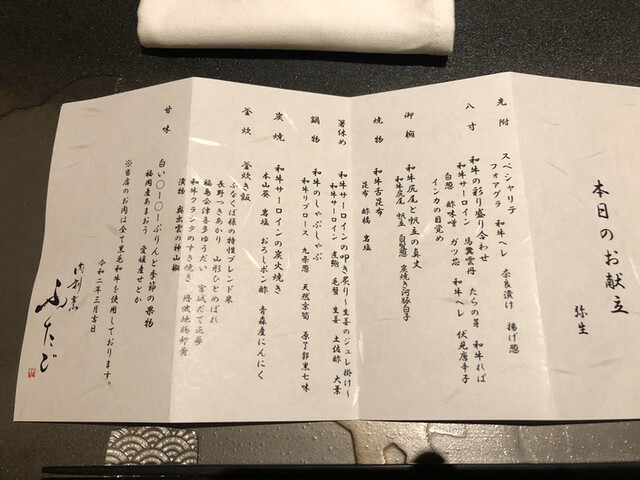 本日のお献立
弥生
先附
スペシャリテ
フォアグラ 和牛ヘレ 奈良漬け 揚げ葱
八寸
和牛の彩り盛り合わせ
和牛サーロイン 馬糞雲丹 たらの芽 和牛れば
白葱 酢味噌 ガツ芯 和牛ヘレ 伏見唐辛子
インカの目覚め
御椀
和牛尻尾と帆立の真丈
和牛尻尾 帆立 白髪葱 炭焼き河豚白子
焼物
和牛舌昆布
昆布 酢橘 岩塩
箸休め
和牛サーロインの叩き炙り〜生姜のジュレ掛け〜
和牛サーロイン 煮鮑 毛蟹 生姜 土佐酢 大葉
鍋物
和牛のしゃぶしゃぶ
和牛リブロース 九条葱 天然京筍 原了郭黒七味
炭焼
和牛サーロインの炭火焼き
本山葵 岩塩 おろしポン酢 青森産にんにく
釜炊
釜炊き飯
ふなくぼ様の特性ブレンド米
長野つきあかり 山形ひとめぼれ
福島会津喜多ゆうだい 宮城だて正夢
和牛クランタのすき焼き 丹波地鶏卵黄
漬物 奥出雲の神山椒
甘味
白い〇ー〇ーぷりんと季節の果物
福岡産あまおう 愛媛産せとか
※当店のお肉は全て黒毛和牛を使用しております。
令和二年三月吉日
肉割烹
ふたご